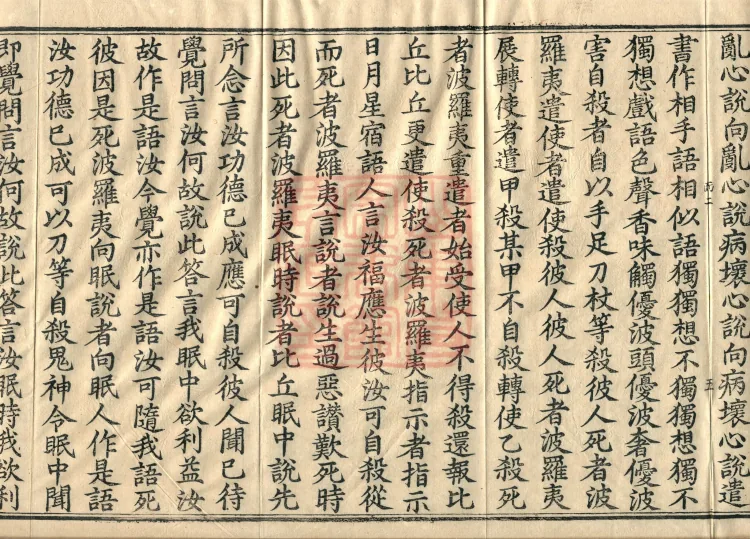 亂心說向亂心說病壞心說向病壞心說遣
書作相手語相似語獨獨想不獨獨想獨不
獨想戲語色聲香味觸優波頭優波奢優波
害自殺者自以手足刀杖等殺彼人死者波
羅夷遣使者遣使殺彼人彼人死者波羅夷
展轉使者遣甲殺某甲不自殺轉使乙殺死
者波羅夷重遣者始受使人不得殺還報比
丘比丘更遣使殺死者波羅夷指示者指示
日月星宿語人言汝福應生彼汝可自殺從
而死者波羅夷言說者說生過惡讚歎死時
因此死者波羅夷眠時說者比丘眠中說先
所念言汝功德已成應可自殺彼人聞已待
覺問言汝何故說此答言我眠中欲利益汝
故作是語汝今覺亦作是語汝可隨我語死
彼因是死波羅夷向眠說者向眠人作是語
汝功德已成可以刀等自殺鬼神令眠中聞
即覺問言汝何故說此答言汝眠時我欲利